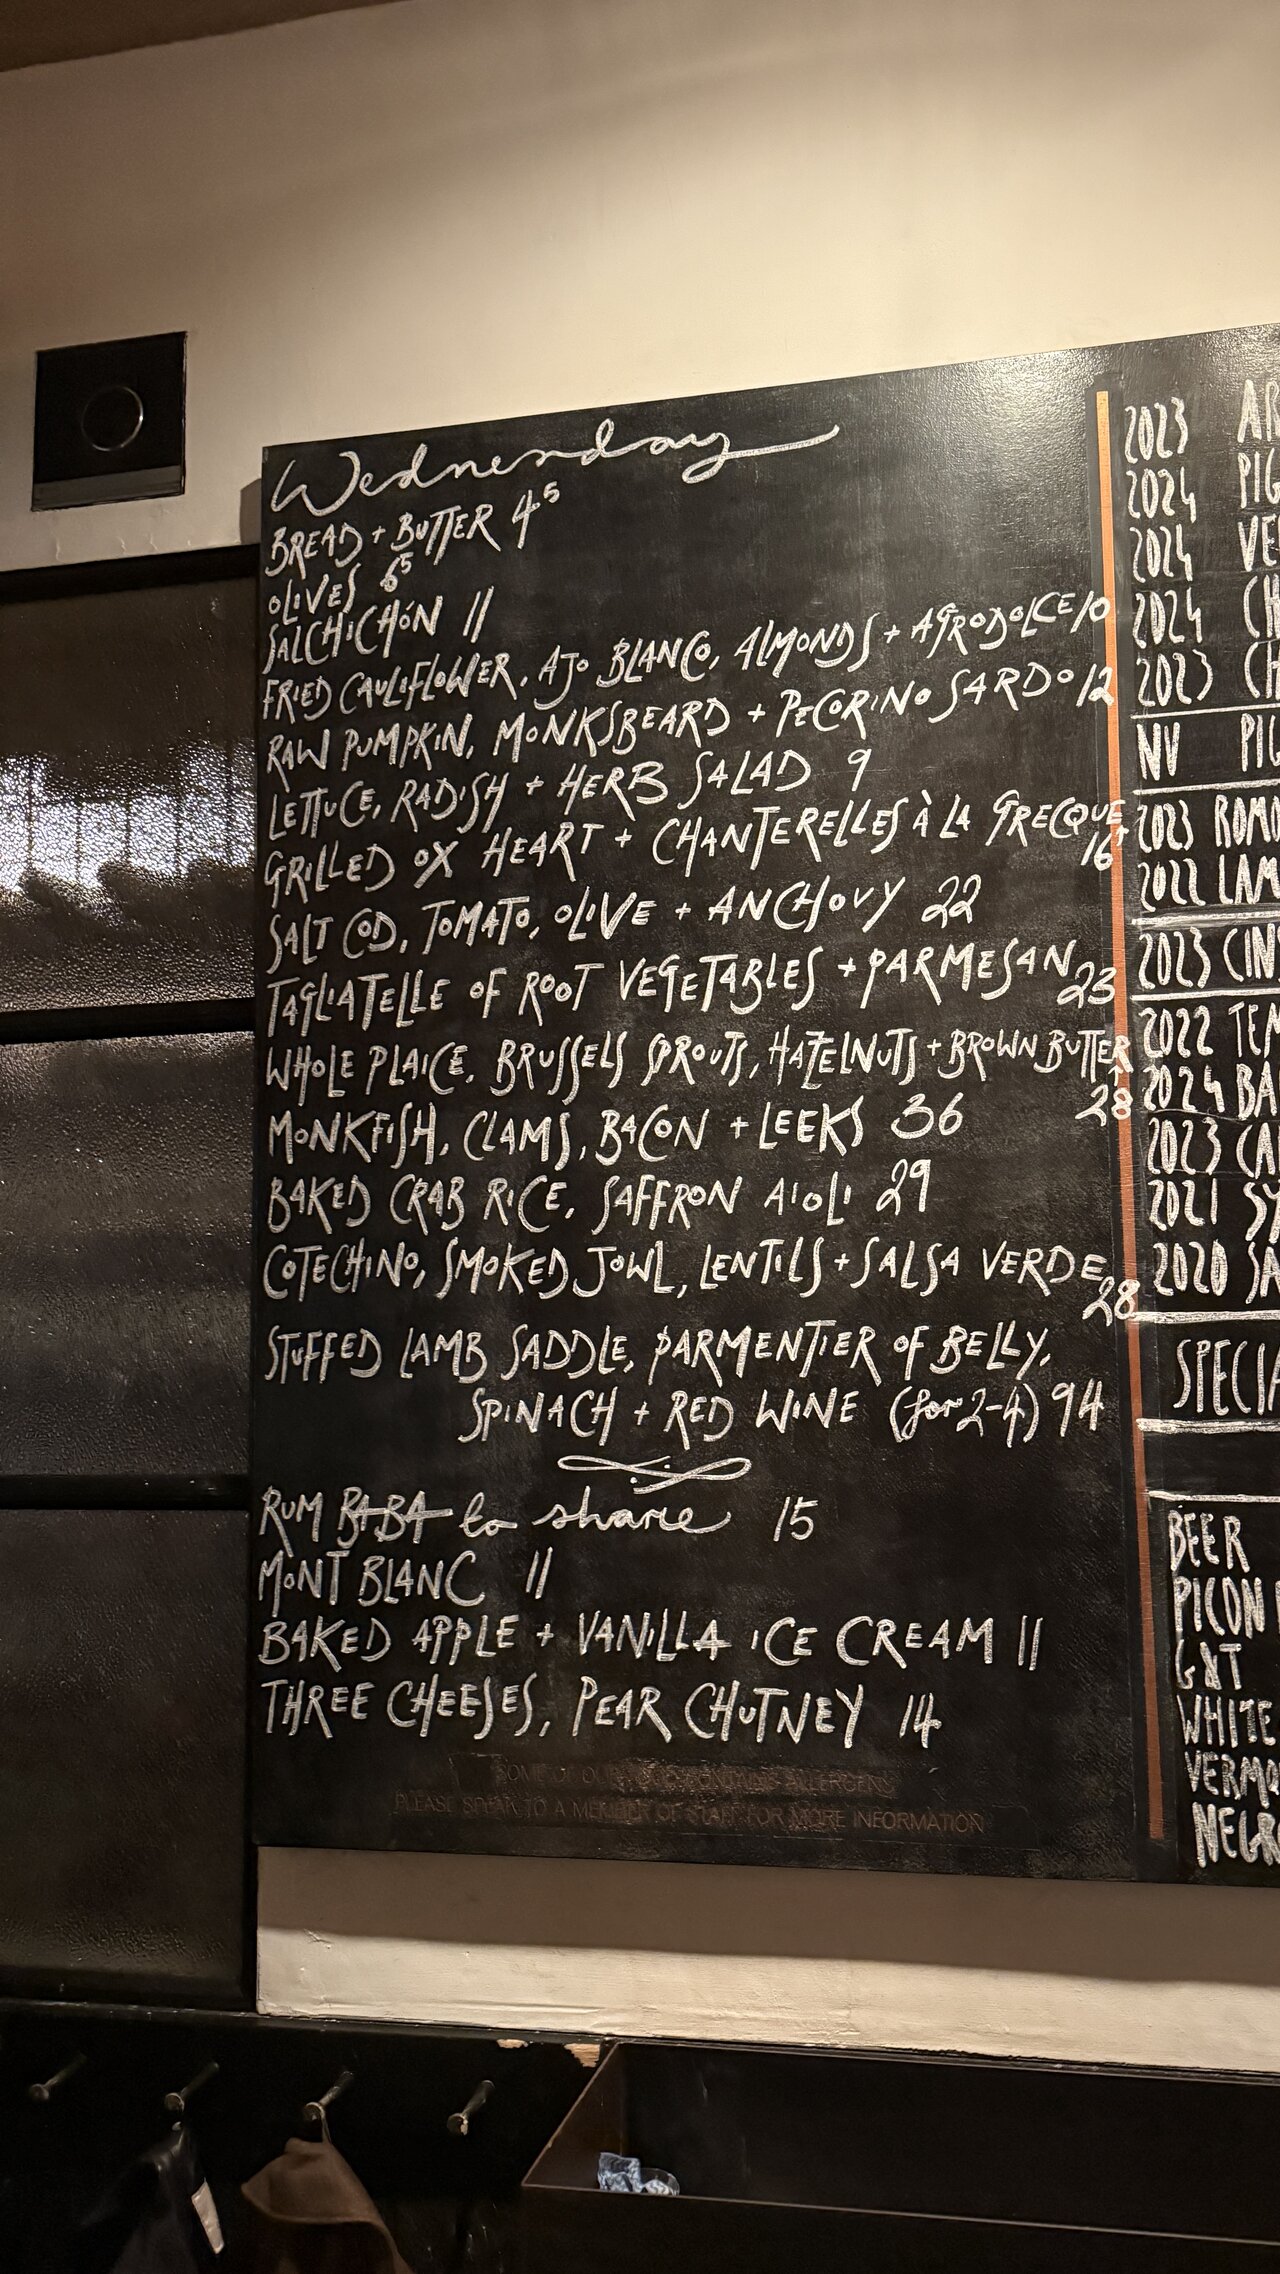 Wednesday
BREAD + BUTTER 4⁵
OLIVES 6⁵
SALCHICHÓN 11
FRIED CAULIFLOWER, AJO BLANCO, ALMONDS + AGRODOLCE 10
RAW PUMPKIN, MONKSBEARD + PECORINO SARDO 12
LETTUCE, RADISH + HERB SALAD 9
GRILLED OX HEART + CHANTERELLES À LA GRECQUE
16
SALT COD, TOMATO, OLIVE + ANCHOVY 22
TAGLIATELLE OF ROOT VEGETABLES + PARMESAN 23
WHOLE PLAICE, BRUSSELS SPROUTS, HAZELNUTS + BROWN BUTTER
28
MONKFISH, CLAMS, BACON + LEEKS 36
BAKED CRAB RICE, SAFFRON AIOLI 29
COTECHINO, SMOKED JOWL, LENTILS + SALSA VERDE
28
STUFFED LAMB SADDLE, PARMENTIER OF BELLY,
SPINACH + RED WINE (for 2-4) 94
RUM BABA to share 15
MONT BLANC 11
BAKED APPLE + VANILLA ICE CREAM 11
THREE CHEESES, PEAR CHUTNEY 14
SOME OF OUR CONTAINS ALLERGENS
PLEASE SPEAK TO A MEMBER OF STAFF FOR MORE INFORMATION
2023
2024 PIG
2024 VE
2024 CH
2023 CH
NV
2023
2022 LAM
2023 CIN
2022 TEM
2024 BA
2023 CA
2021 SY
2020 SA
SPECIA
BEER
PICON
G&T
WHITE
VERMO
NEGRO